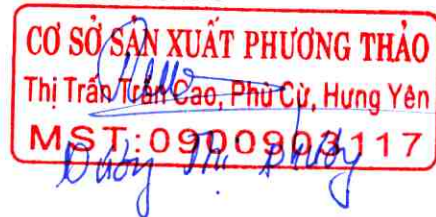 CƠ SỞ SẢN XUẤT PHƯƠNG THẢO
Thị Trấn Trần Cao, Phù Cừ, Hưng Yên
MST:0900903117
Thị